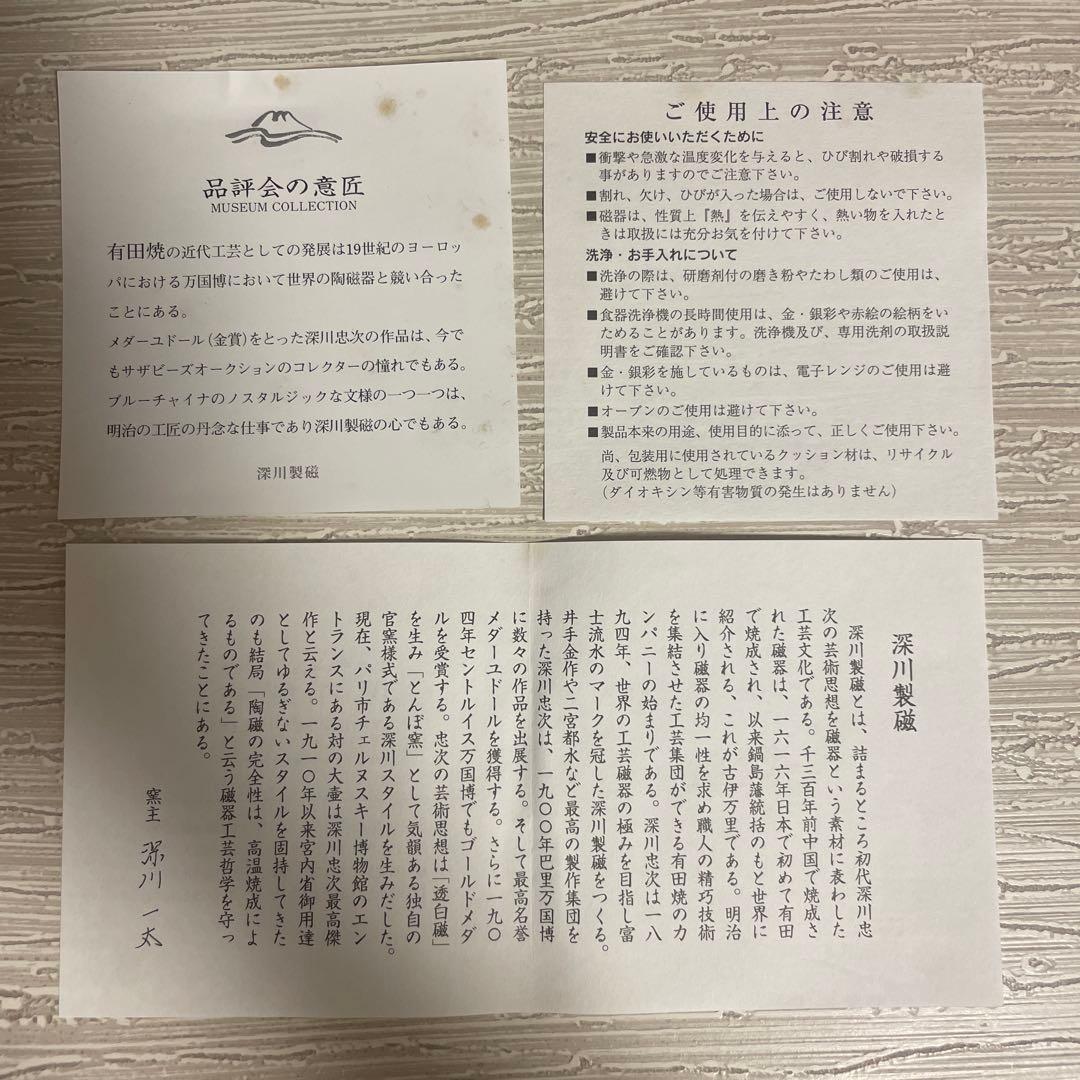 品評会の意匠
MUSEUM COLLECTION
有田焼の近代工芸としての発展は19世紀のヨーロッ
パにおける万国博において世界の陶磁器と競い合った
ことにある。
メダーユドール(金賞)をとった深川忠次の作品は、今で
もサザビーズオークションのコレクターの憧れでもある。
ブルーチャイナのノスタルジックな文様の一つ一つは、
明治の工匠の丹念な仕事であり深川製磁の心でもある。
深川製磁
ご使用上の注意
安全にお使いいただくために
■衝撃や急激な温度変化を与えると、ひび割れや破損する
事がありますのでご注意下さい。
■割れ、欠け、ひびが入った場合は、ご使用しないで下さい。
■磁器は、性質上『熱』を伝えやすく、熱い物を入れたと
きは取扱には充分お気を付けて下さい。
洗浄・お手入れについて
■洗浄の際は、研磨剤付の磨き粉やたわし類のご使用は、
避けて下さい。
■食器洗浄機の長時間使用は、金・銀彩や赤絵の絵柄をい
ためることがあります。洗浄機及び、専用洗剤の取扱説
明書をご確認下さい。
■金・銀彩を施しているものは、電子レンジのご使用は避
けて下さい。
■オーブンのご使用は避けて下さい。
■製品本来の用途、使用目的に添って、正しくご使用下さい。
尚、包装用に使用されているクッション材は、リサイクル
及び可燃物として処理できます。
(ダイオキシン等有害物質の発生はありません)
深川製磁
深川製磁とは、詰まるところ初代深川忠
次の芸術思想を磁器という素材に表わした
工芸文化である。千三百年前中国で焼成さ
れた磁器は、一六一六年日本で初めて有田
で焼成され、以来鍋島藩統括のもと世界に
紹介される、これが古伊万里である。明治
に入り磁器の均一性を求め職人の精巧技術
を集結させた工芸集団ができる有田焼の力
ンパニーの始まりである。深川忠次は一八
九四年、世界の工芸磁器の極みを目指し富
士流水のマークを冠した深川製磁をつくる。
井手金作や二宮都水など最高の製作集団を
持った深川忠次は、一九〇〇年巴里万国博
に数々の作品を出展する。そして最高名誉
メダーユドールを獲得する。さらに一九〇
四年セントルイス万国博でもゴールドメダ
ルを受賞する。忠次の芸術思想は「透白磁」
を生み「とんぼ窯」として気韻ある独自の
官窯様式である深川スタイルを生みだした。
現在、パリ市チェルヌスキー博物館のエン
トランスにある対の大壷は深川忠次最高傑
作と云える。一九一〇年以来宮内省御用達
としてゆるぎないスタイルを固持してきた
のも結局「陶磁の完全性は、高温焼成によ
るものである」と云う磁器工芸哲学を守っ
てきたことにある。
窯主 深川 一太